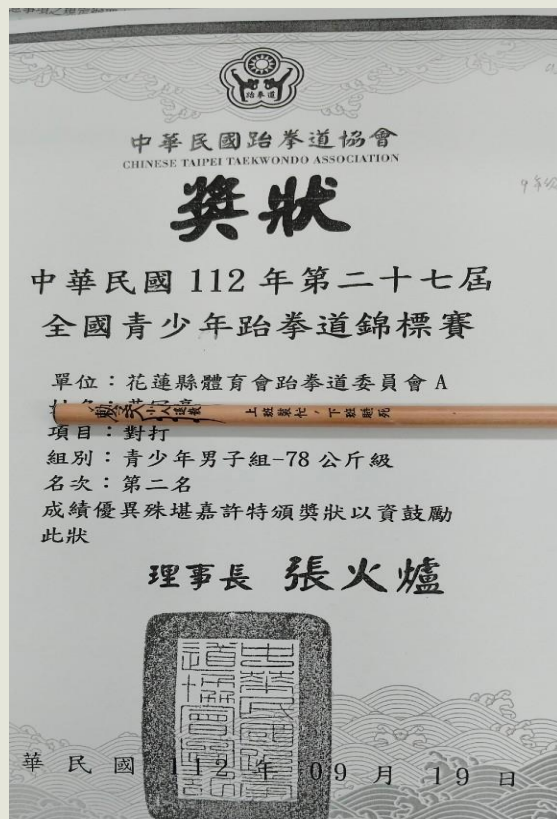 跆拳道
中華民國跆拳道協會
CHINESE TAIPEI TAEKWONDO ASSOCIATION
獎狀
9年級
中華民國 112 年第二十七屆
全國青少年跆拳道錦標賽
單位：花蓮縣體育會跆拳道委員會 A
上班裝忙，下班裝死
項目：對打
組別：青少年男子組-78 公斤級
名次：第二名
成績優異殊堪嘉許特頒獎狀以資鼓勵
此狀
理事長 張火爐
華民國 112 年 09 月 19 日